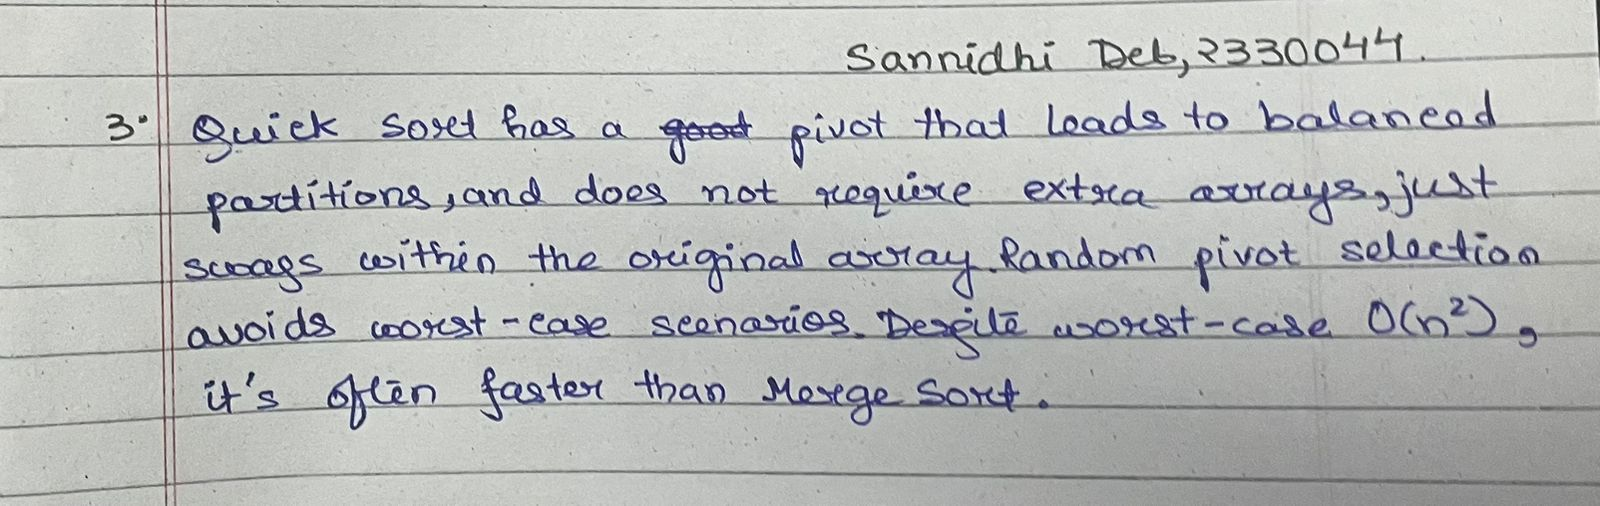 Sannidhi Deb, 2330044.
3. Quick sort has a good pivot that leads to balanced
partitions, and does not require extra arrays, just
swaps within the original array. Random pivot selection
avoids worst-case scenarios. Despite worst-case O(n²),
it's often faster than Merge Sort.